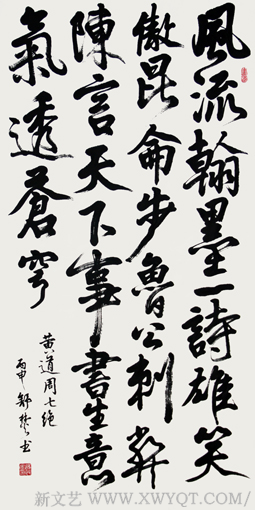 風流翰墨一詩雄笑
傲昆侖步魯公刺弊
陳言天下事書生意
氣透蒼穹
黃道周七絕
丙申 书
新文艺 - WWW.XWYQT.COM